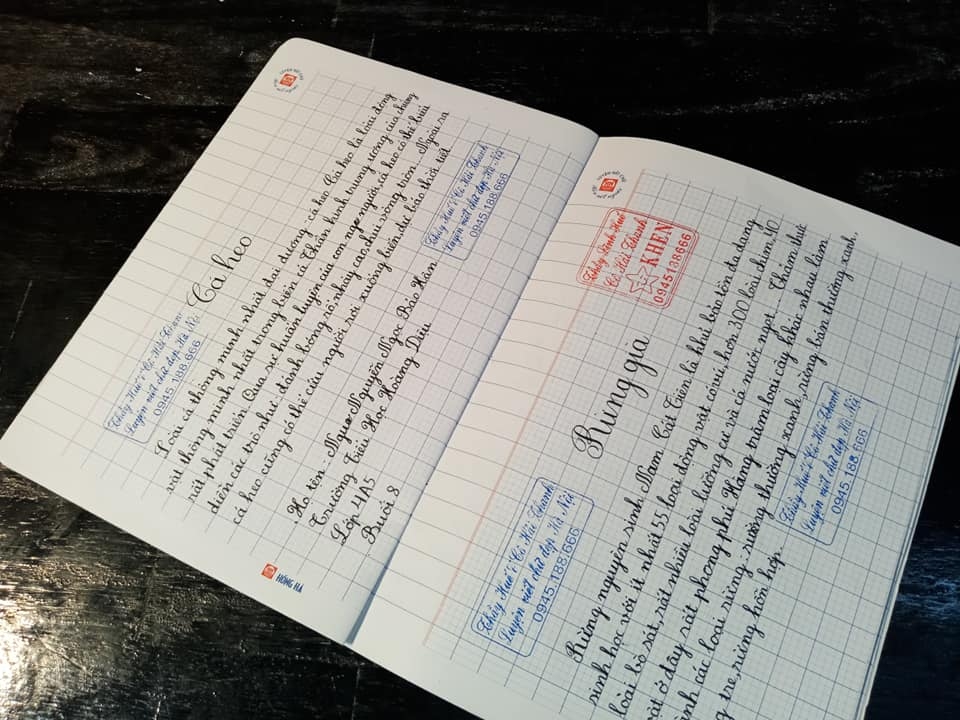 Cá heo
Loài cá thông minh nhất đại dương - cá heo. Cá heo là loài động
vật thông minh nhất trong biển cả. Thần kinh trung ương của chúng
rất phát triển. Qua sự huấn luyện của con người, cá heo có thể biểu
diễn các trò như: đánh bóng rổ, nhảy cao, chui vòng tròn... Ngoài ra
cá heo cũng có thể cứu người rơi xuống biển, dự báo thời tiết
Họ tên - Nguyễn Ngọc Bảo Hân
Trường Tiểu Học Hoàng Diệu
Lớp 4A5
Buổi 8
Luyện viết chữ đẹp Hà Nội
0945.188.666
Thầy Huế : Cô Hải Thanh
Luyện viết chữ đẹp Hà Nội
0945.188.666
HỒNG HÀ
Cô Hải Thanh
KHEN
0945188666
Rừng già
Rừng nguyên sinh Nam Cát Tiên là khu bảo tồn đa dạng
sinh học với ít nhất 55 loài động vật có vú, hơn 300 loài chim, 40
loài bò sát, rất nhiều loài lưỡng cư và cá nước ngọt... Thảm thực
vật ở đây rất phong phú. Hàng trăm loài cây khác nhau làm
thành các loại rừng: rừng thường xanh, rừng bán thường xanh,
tre, rừng hỗn hợp.
Thầy Huế : Cô Hải Thanh
Luyện viết chữ đẹp Hà Nội
0945.188.666
Thầy Huế : Cô Hải Thanh
Luyện viết chữ đẹp Hà Nội
0945.188.666